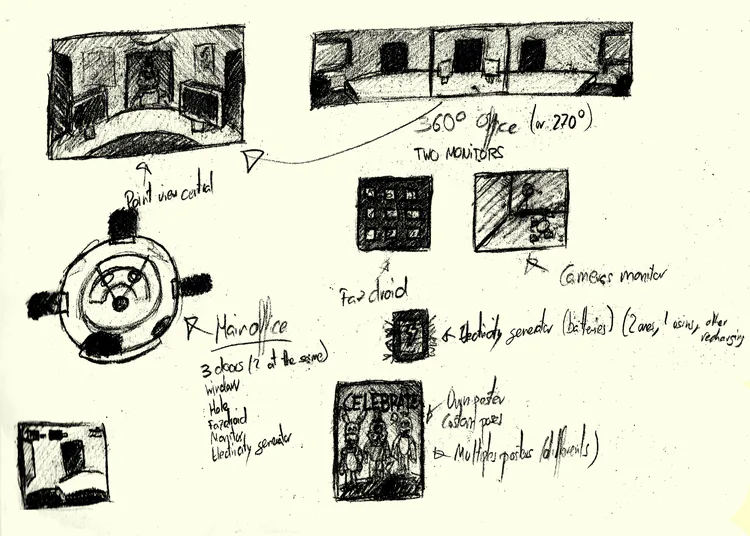 360° Office (or 270°)
TWO MONITORS
Point view central
Cameras monitor
Fazdroid
Main office
3 doors (2 at the same)
window
Hole
Fazdroid
Monitor
Electricity generator
Electricity generator (batteries) (2 ones, 1 using, other
recharging
CELEBRATE
Own poster
Custom poses
Multiples posters (differents)